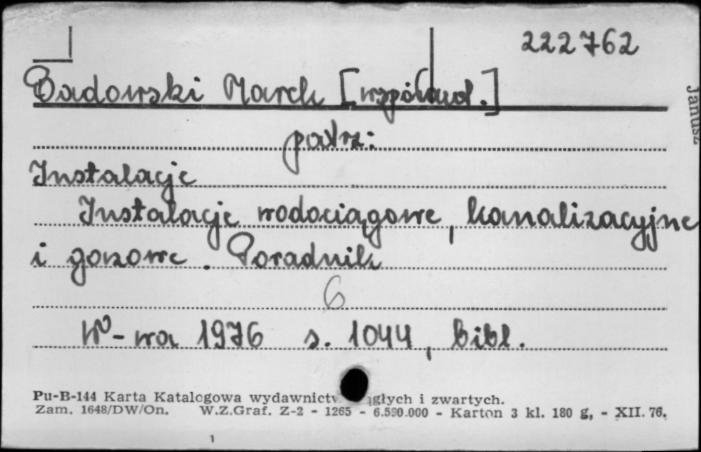 222762
Badowski Marek [współaut.]
Janusz
patrz:
Instalacje
Instalacje wodociągowe, kanalizacyjne
i gazowe. Poradnik
6
W-wa 1976 s. 1044, bibl.
Pu-B-144 Karta Katalogowa wydawnictw ciągłych i zwartych.
Zam. 1648/DW/On. W.Z.Graf. Z-2 - 1265 - 6.590.000 - Karton 3 kl. 180 g, - XII. 76.
1